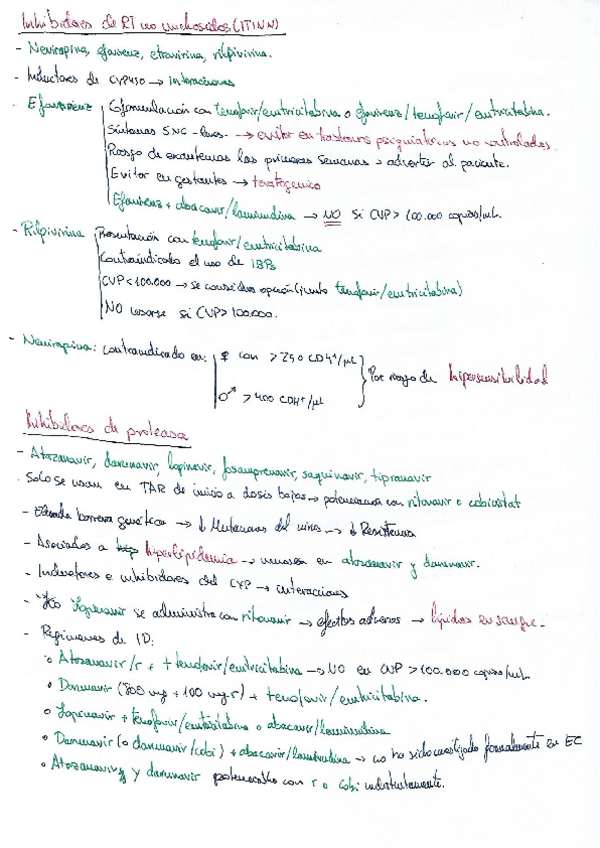 Inhibidores de RT no nucleosidos (ITINN)
- Nevirapina, efavirenz, etravirina, rilpivirina.
- Inductores de CYP450 → interacciones
- Efavirenz Coformulación con tenofovir/emtricitabina o efavirenz/tenofovir/emtricitabina.
Síntomas SNC -leves- → evitar en trastornos psiquiátricos no controlados.
Riesgo de exantemas las primeras semanas → advertir al paciente.
Evitar en gestantes → teratogenico
Efavirenz + abacavir/lamivudina → NO si CVP > 100.000 copias/mL.
- Rilpivirina Presentación con tenofovir/emtricitabina
Contraindicados el uso de IBPs
CVP<100.000 → se considera opción (junto tenofovir/emtricitabina)
NO usarse si CVP> 100.000.
- Nevirapina: contraindicado en: ♀ con > 250 CD4+/µL
♂ > 400 CD4+/µL
Por riesgo de hipersensibilidad
Inhibidores de proteasa
- Atazanavir, darunavir, lopinavir, fosamprenavir, saquinavir, tipranavir
. Solo se usan en TAR de inicio a dosis bajas → potenciación con ritonavir o cobicistat
- Elevada barrera genética → ↓ Mutaciones del virus → ↓ Resistencia
- Asociados a hiperlipidemia → menos en atazanavir y darunavir.
- Inductores e inhibidores del CYP → interacciones
- Lopinavir se administra con ritonavir → efectos adversos → lípidos en sangre.
- Regimenes de ID:
• Atazanavir/r + tenofovir/emtricitabina → NO en CVP > 100.000 copias/mL
• Darunavir (800 mg + 100 mg r) + tenofovir/emtricitabina.
• Lopinavir + tenofovir/emtricitabina o abacavir/lamivudina
• Darunavir (o darunavir/cobi) + abacavir/lamivudina → no ha sido investigado formalmente en EC
• Atazanavir y darunavir potenciados con r o cobi indistintamente.